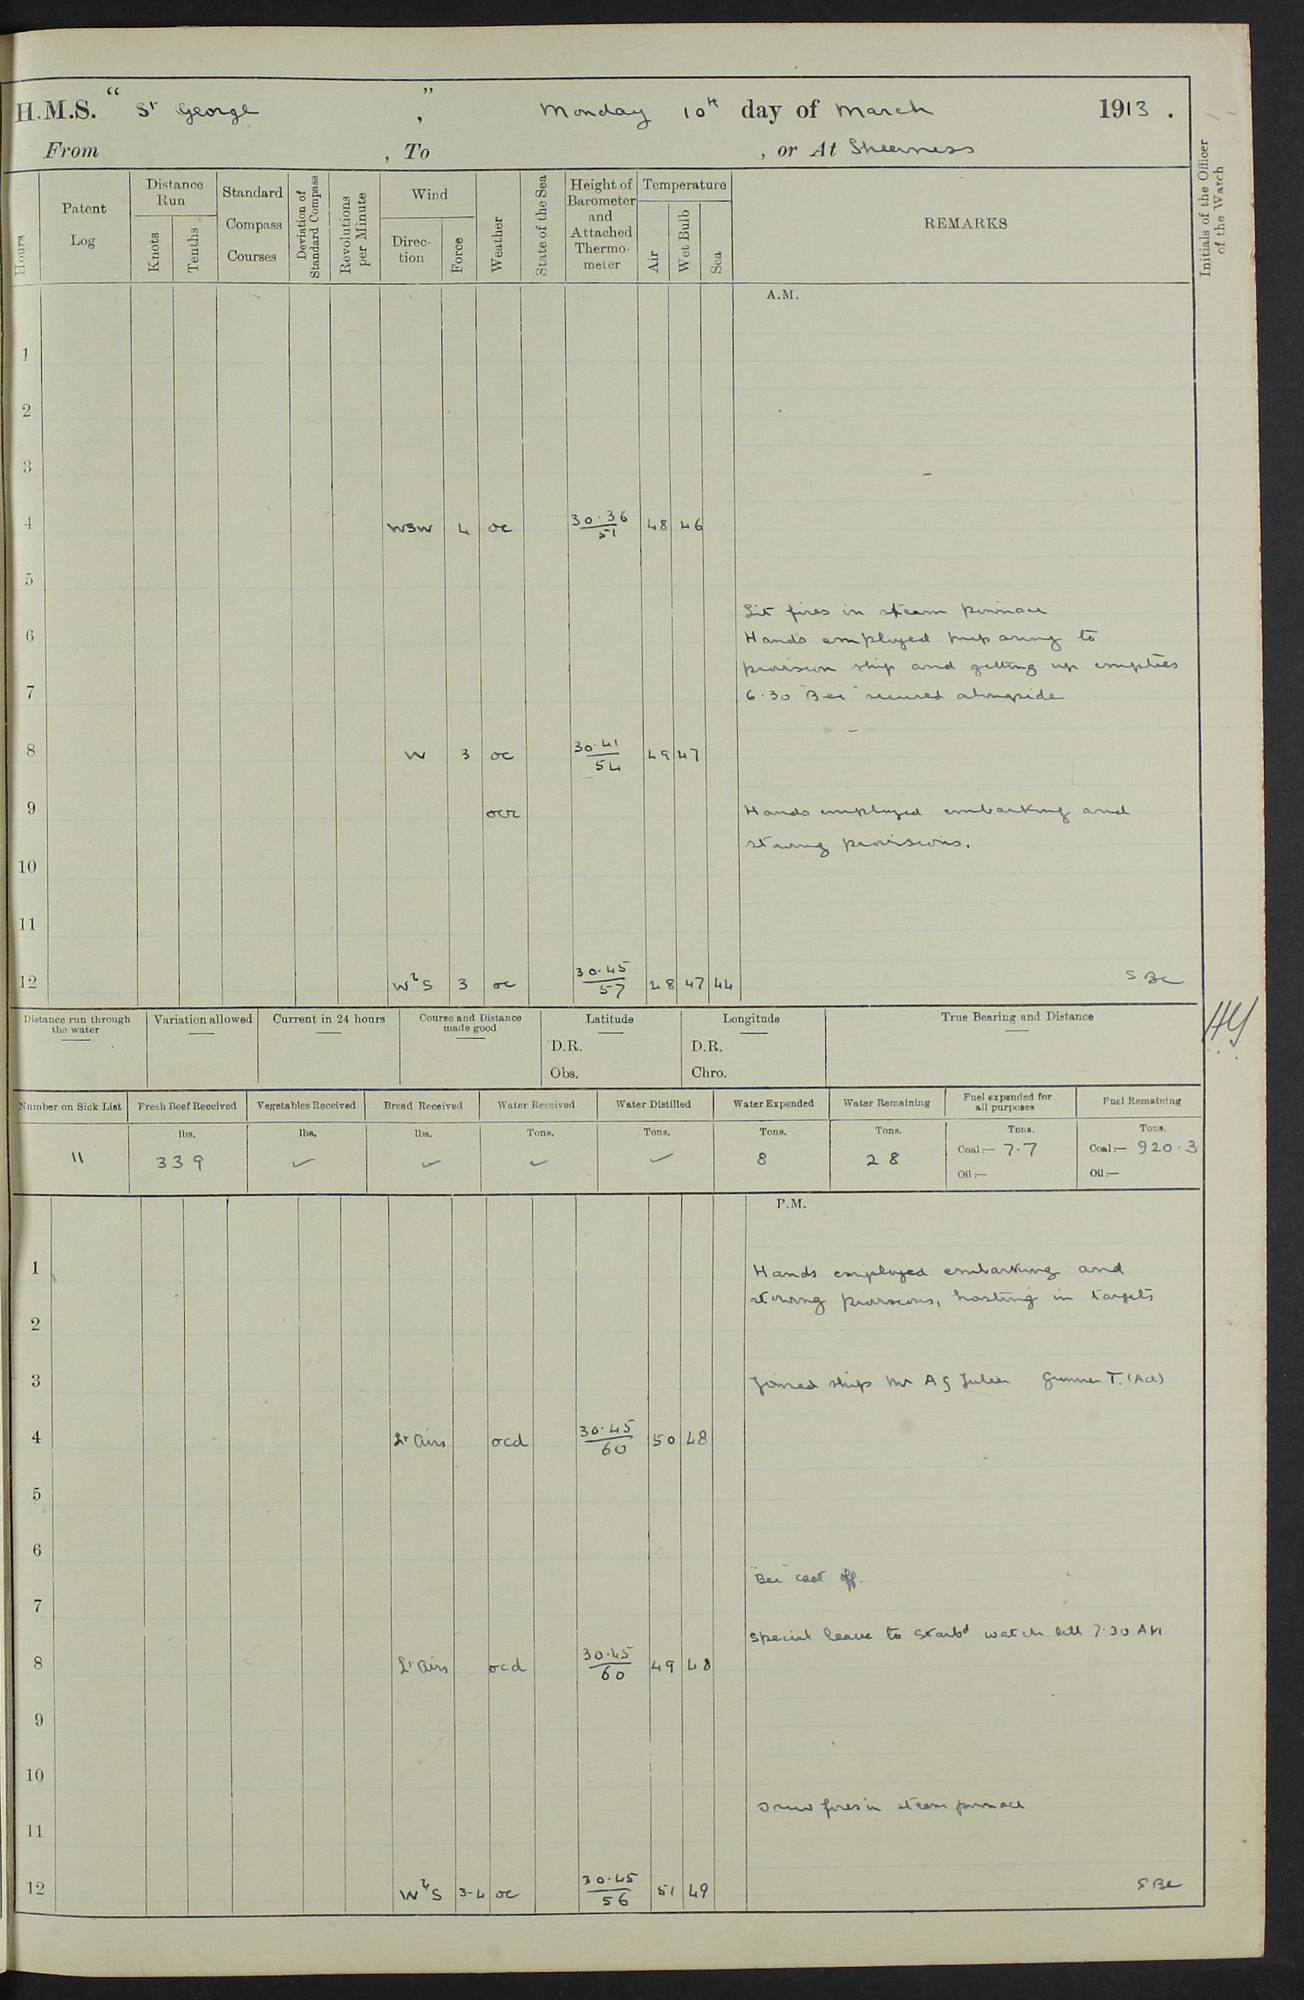 H.M.S. “ St George ”, Monday 10th day of March 1913.
From , To , or At Sheerness
Hours
Patent Log
Distance Run
Knots
Tenths
Standard Compass Courses
Deviation of Standard Compass
Revolutions per Minute
Wind
Direc-tion
Force
Weather
State of the Sea
Height of Barometer and Attached Thermo-meter
Temperature
Air
Wet Bulb
Sea
REMARKS
Initials of the Officer of the Watch
A.M.
1
2
3
4 WSW 4 oc 30.36 51 48 46
5
Lit fires in steam pinnace
6 Hands employed preparing to
provision ship and getting up empties
7 6.30 "Bee" secured alongside
8 W 3 oc 30.41 54 49 47
9 ocr Hands employed embarking and
stowing provisions.
10
11
12 W S 3 oc 30.45 57 28 47 44
Distance run through the water
Variation allowed
Current in 24 hours
Course and Distance made good
Latitude
D.R.
Obs.
Longitude
D.R.
Chro.
True Bearing and Distance
Number on Sick List
Fresh Beef Received
Vegetables Received
Bread Received
Water Received
Water Distilled
Water Expended
Water Remaining
Fuel expended for all purposes
Fuel Remaining
lbs. lbs. lbs. Tons. Tons. Tons. Tons. Tons. Tons.
11 339 ✓ ✓ ✓ ✓ 8 28 Coal:— 7.7 Coal:— 920.3
Oil:— Oil:—
P.M.
1 Hands employed embarking and
stowing provisions, hoisting in targets
2
3 Joined ship Mr A G Gunner T. (Act)
4 Lt Airs ocd 30.45 60 50 48
5
6
"Bee" cast off.
7
Special leave to Starbd watch till 7.30 AM
8 Lt Airs ocd 30.45 60 49 48
9
10
Drew fires in steam pinnace
11
12 W S 3-4 oc 30.45 56 51 49